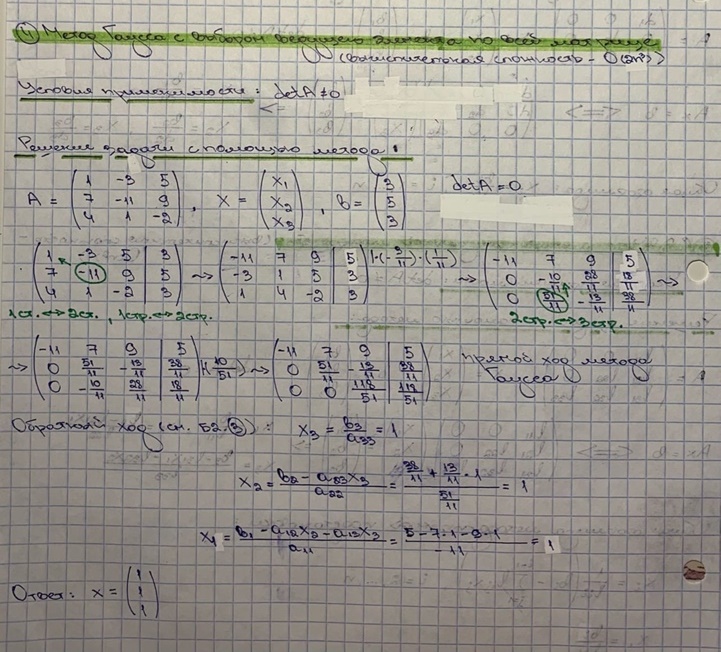 ④ Метод Гаусса с выбором ведущего элемента по всей матрице
(вычислительная сложность - O(2n³))
Условия применимости: detA≠0
<=
Решение задачи с помощью метода:
A = (1 -3 5; 7 -11 9; 4 1 -2), X = (x₁; x₂; x₃), b = (3; 5; 3) detA=0
(1 -3 5 | 3; 7 -11 9 | 5; 4 1 -2 | 3) ~> (-11 7 9 | 5; -3 1 5 | 3; 1 4 -2 | 3) |·(-3/11)·(1/11) ~> (-11 7 9 | 5; 0 -10/11 28/11 | 18/11; 0 51/11 -13/11 | 38/11) ~>
1ст. <-> 2ст., 1стр. <-> 2стр. 2стр. <-> 3стр.
~> (-11 7 9 | 5; 0 51/11 -13/11 | 38/11; 0 -10/11 28/11 | 18/11) |·(10/51) ~> (-11 7 9 | 5; 0 51/11 -13/11 | 38/11; 0 0 118/51 | 118/51) прямой ход метода
Гаусса
Обратный ход (см. Б2.③): x₃ = b₃/a₃₃ = 1
x₂ = (b₂ - a₂₃x₃)/a₂₂ = (38/11 + 13/11 · 1)/(51/11) = 1
x₁ = (b₁ - a₁₂x₂ - a₁₃x₃)/a₁₁ = (5 - 7·1 - 9·1)/(-11) = 1
Ответ: x = (1; 1; 1)